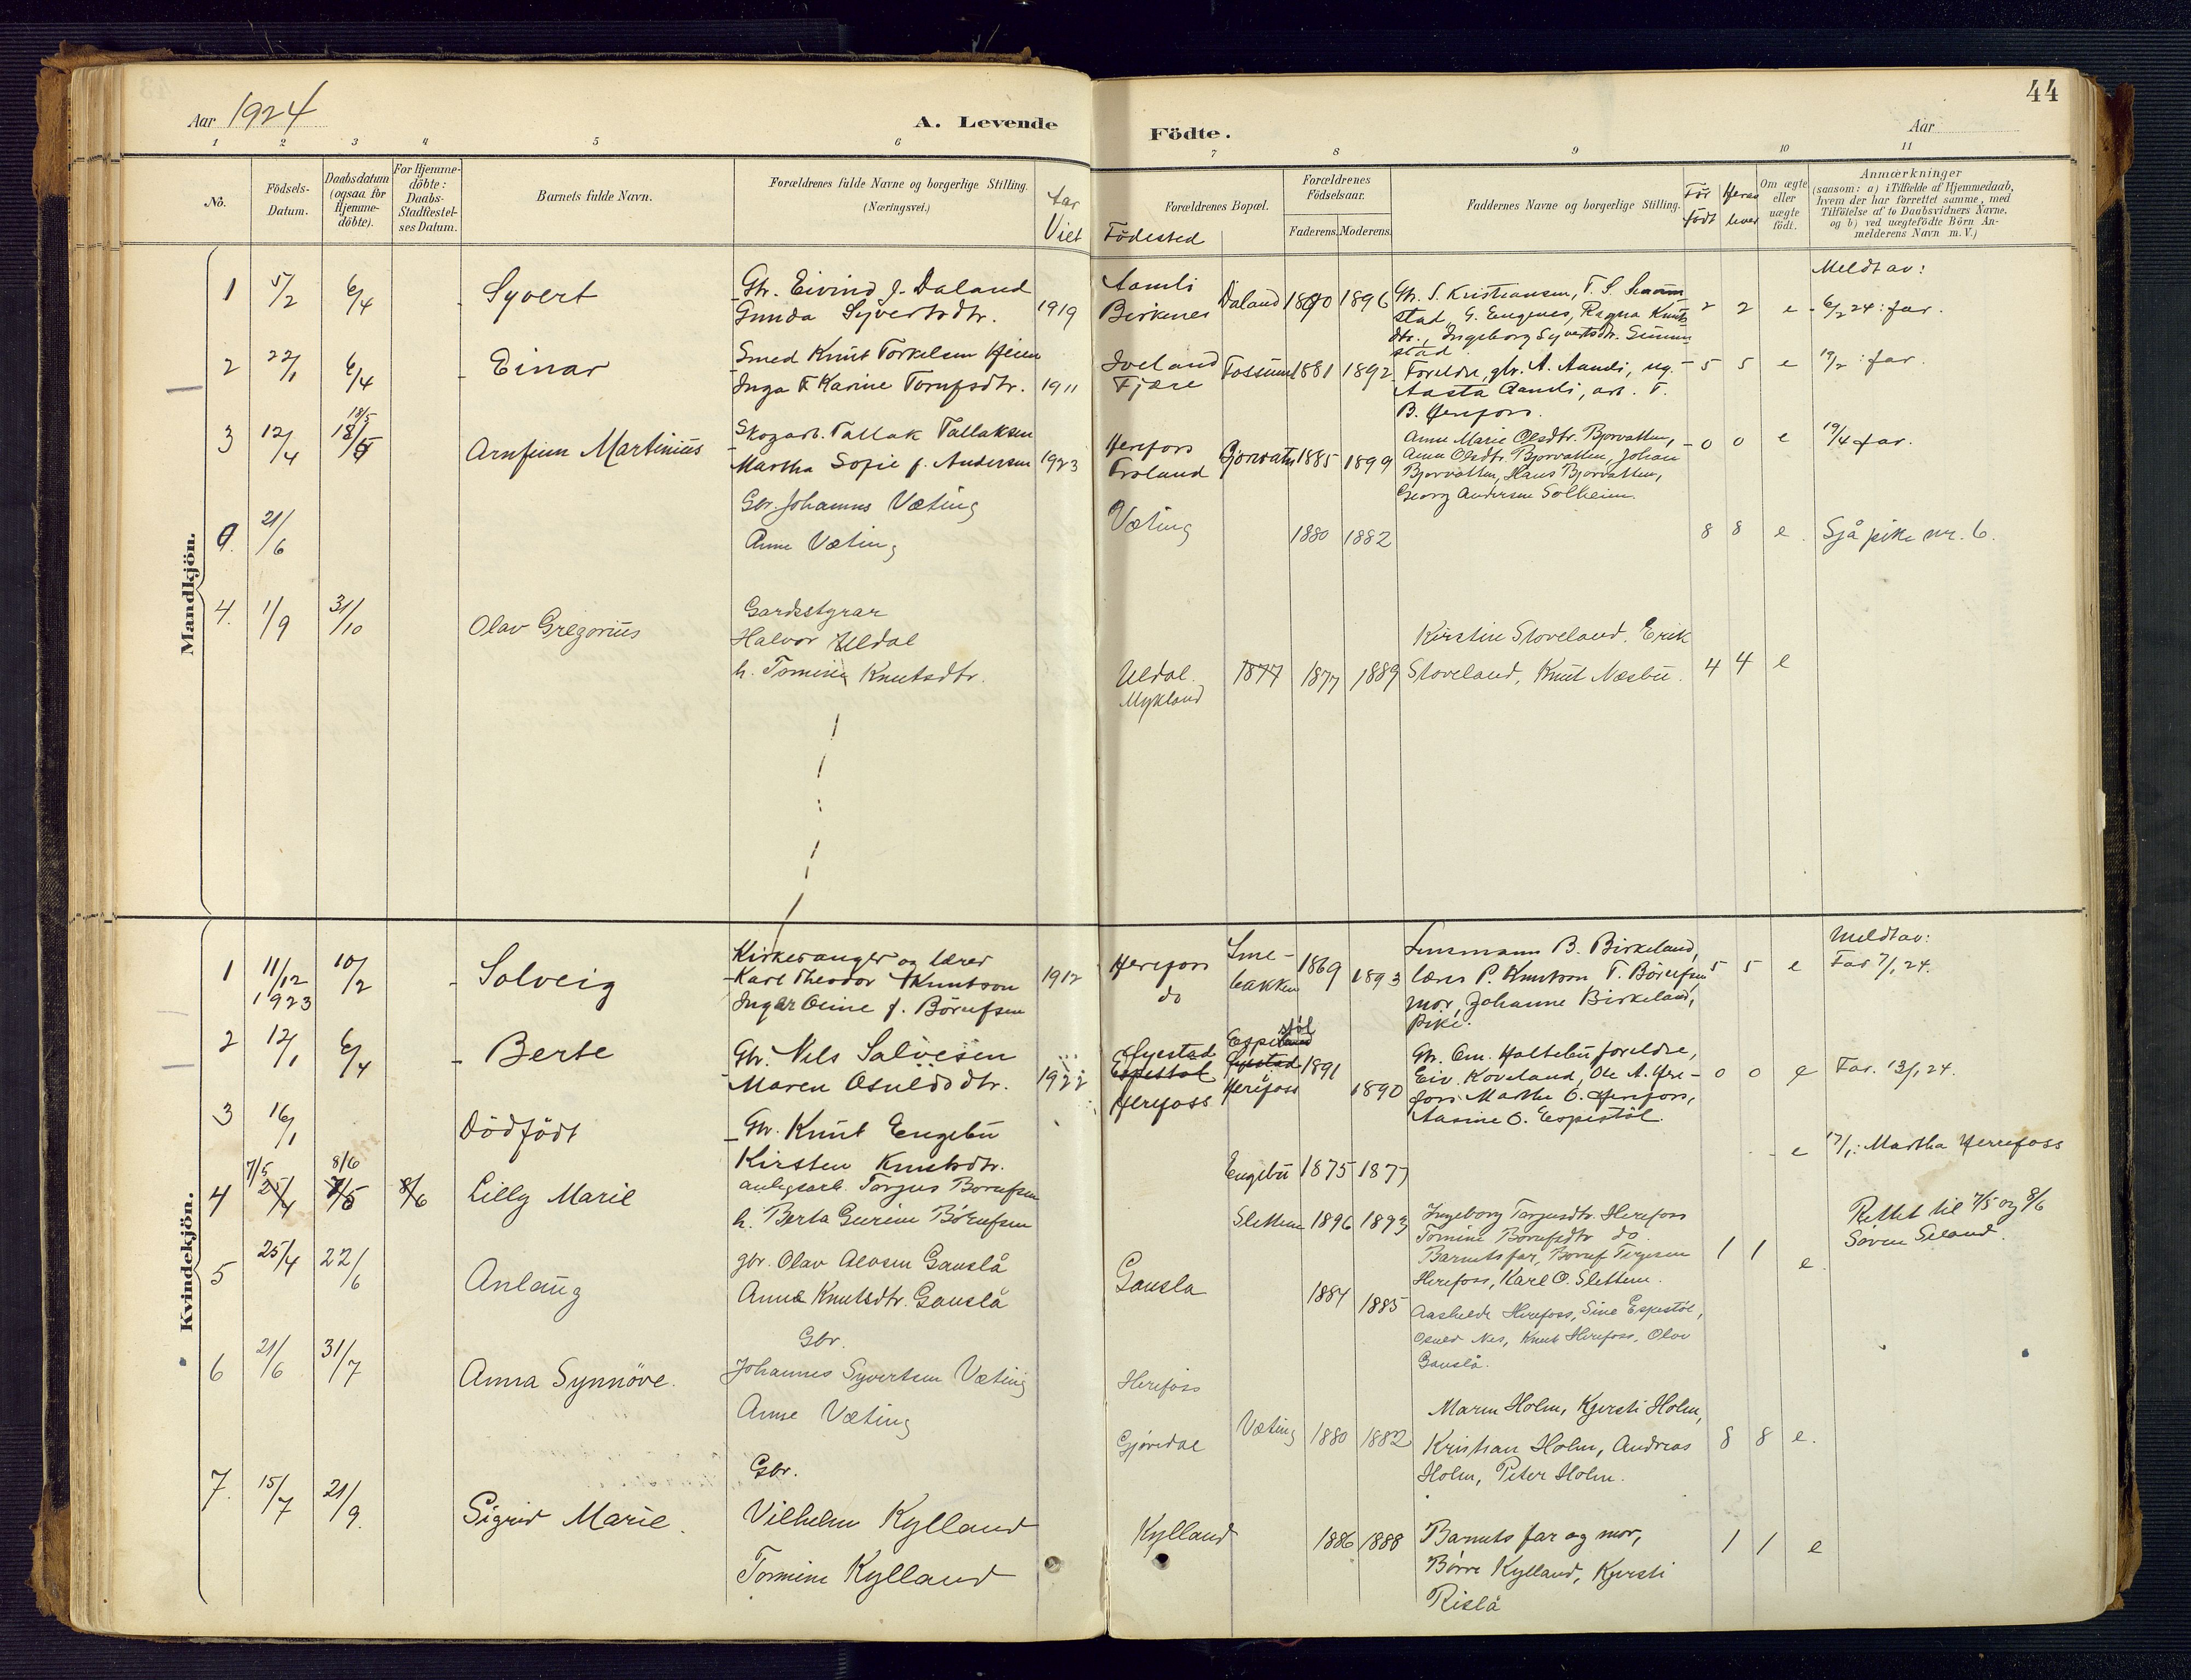 44
Aar 1924
A. Levende Födte.
Aar
1 2 3 4 5 6 7 8 9 10 11
No.
Födsels-
Datum.
Daabsdatum
(ogsaa for
Hjemme-
döbte).
For Hjemme-
döbte:
Daabs-
Stadfæstel-
ses Datum.
Barnets fulde Navn.
Forældrenes fulde Navne og borgerlige Stilling.
(Næringsvei.)
Aar
Viet
Forældrenes Bopæl.
Födested
Forældrenes
Födselsaar.
Faderens. Moderens.
Faddernes Navne og borgerlige Stilling.
Før
født
Heraf
lever
Om ægte
eller
uægte
födt.
Anmærkninger
(saasom: a) i Tilfælde af Hjemmedaab,
hvem der har forrettet samme, med
Tilföielse af to Daabsvidners Navne,
og b) ved uægtefödte Börn An-
melderens Navn m. V.)
Mandkjön.
1 5/2 6/4 Syvert
Gbr. Eivind J. Daland
Gunda Syvertsdtr. 1919
Aamli
Birkenes
Daland 1890 1896
Gbr. S. Kristiansen, T. S.
stad, G. Engenes, Ragna Knuts
dtr., Ingeborg Syvertsdtr.
stad.
2 2 e
Meldt av:
6/2 24: far.
2 22/1 6/4 Einar
Smed Knut Torkelsen Heien
Inga Karine Torufsdtr. 1911
Iveland
Fjære
Fossum 1881 1892
Foreldre, gbr. A. Aamli, ug.
Aasta Aamli, arb. T.
B. Herefoss.
5 5 e 19/2: far.
3 12/4 18/5 Arnfinn Martinius
Skogarb. Tallak Tallaksen
Martha Sofie f. Andersen 1923
Herefoss
Froland
Bjorvatn 1885 1899
Anne Marie Olsdtr. Bjorvatten,
Anna Olsdtr. Bjorvatten, Johan
Bjorvatten, Hans Bjorvatten,
Georg Andersen Solheim.
0 0 e 19/4 far.
0. 21/6
Gbr. Johannes Væting
Anne Væting
Væting 1880 1882 8 8 e. Sjå pike nr. 6.
4. 1/9 31/10 Olav Gregorius
Gardstyrar
Halvor Uldal
h. Tomine Knutsdtr.
Uldal.
Mykland
1877 1877 1889
Kirstin Stoveland. Erik
Stoveland, Knut Næsbu.
4 4 e
Kvindekjön.
1 11/12 1923 10/2 Solveig
Kirkesanger og lærer
Karl Theodor Knutson
Ingar Oline f. Börufsen 1912
Herefoss
do
Sme-
bakken 1869 1893
Lensmann B. Birkeland,
lærer P. Knutson T. Börufsen
mor, Johanne Birkeland,
pike.
5 5 e
Meldt av:
Far 7/1 24.
2 12/1 6/4 Berte
Gbr. Nils Salvesen
Maren Osulddtr. 1922
Øyestad
Espestöl
Herefoss
Espestöl
Øyestad
Herefoss
1891 1890
Gbr. Om. Haltebu foreldre,
Eiv. Koveland, Ole A. Here-
foss Marthe O. Herefoss,
Aasine O. Espestöl.
0 0 e Far. 13/1 24.
3 16/1 Dödfödt
Gbr. Knut Engebu
Kirsten Knutsdtr.
Engebu 1875 1877
e 17/1: Martha Herrefoss
4 7/5 25/4 8/6 7/5 8/6 Lilly Marie
anlegsarb. Torjus Borufsen
h. Berta Gurine Börufsen
Sletten 1896 1893
Ingeborg Torjusdtr. Herefoss
Tomine Börufsdtr do.
Barnets far, Boruf Terjesen
Herefoss, Karl O. Slettene.
1 1 e
Rettet til 7/5 og 8/6
Søren Seland.
5 25/4 22/6 Anlaug
gbr. Olav Olosen Gauslå
Anna Knutsdtr. Gauslå
Gausla 1884 1885
Aashilde Herefoss, Sine Espestöl,
Osuld Nes, Knut Herefoss, Olav
Gauslå.
6 21/6 31/7 Anna Synnöve.
Gbr.
Johannes Syvertsen Væting
Anne Væting
Herefoss
Gjövdal
Væting 1880 1882
Maren Holm, Kjersti Holm,
Kristian Holm, Andreas
Holm, Peter Holm.
8 8 e.
7. 15/7 21/9. Sigrid Marie.
Gbr.
Vilhelm Kylland
Tomine Kylland
Kylland 1886 1888
Barnets far og mor,
Börre Kylland, Kjersti
Rislå
1 1 e